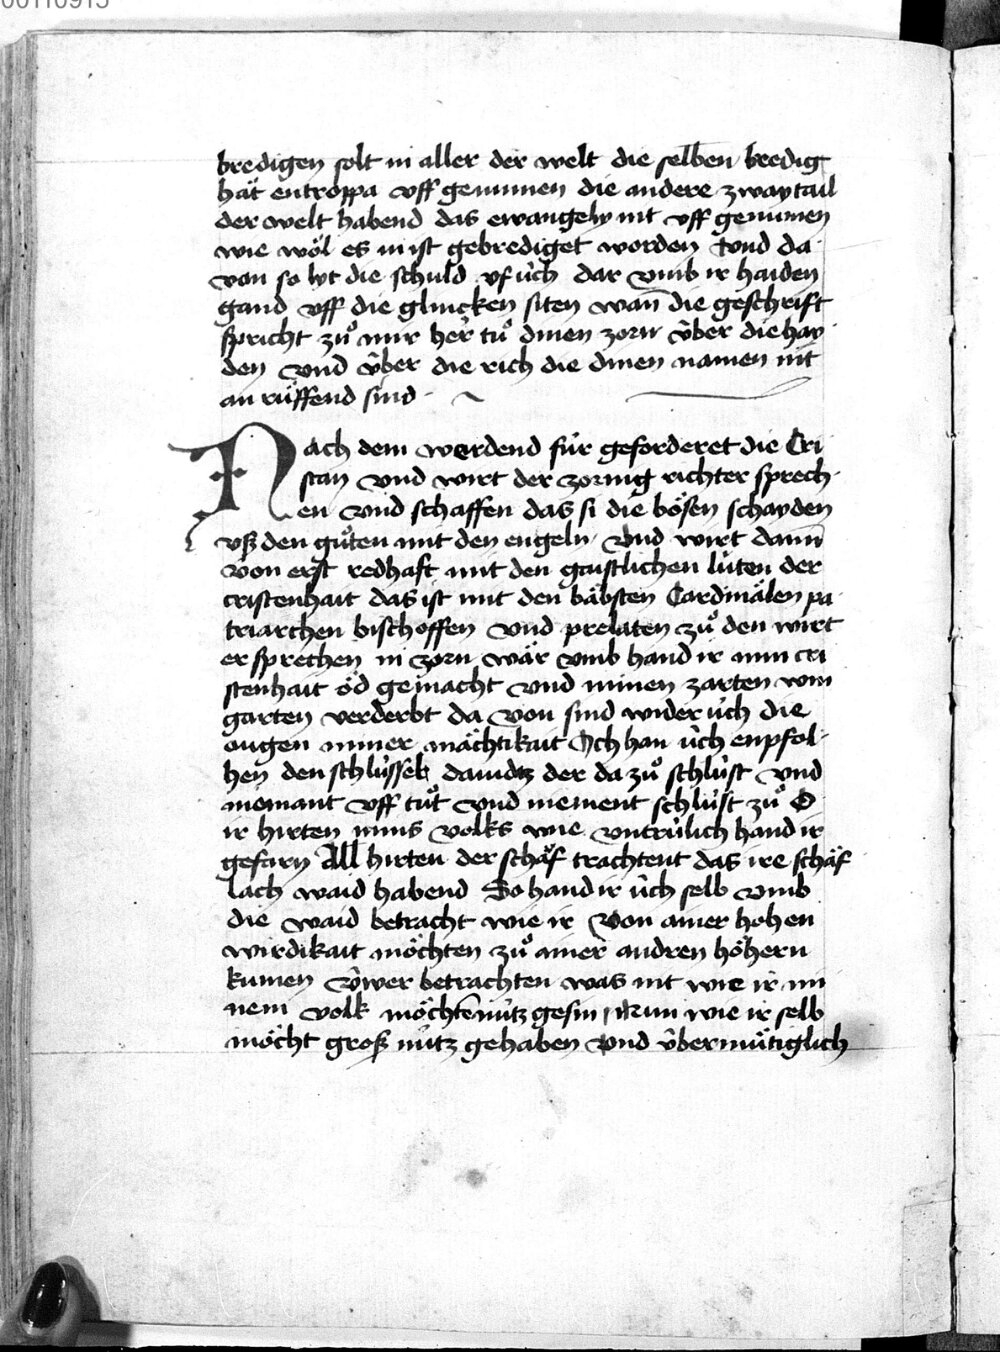 00110915
bredigen solt in aller der welt die selben bredig
hät entroppa vff genumen die andere zway tail
der welt habend das ewangely nit vff genumen
wie wol es in ist gebrediget worden Vnd da
von so lyt die schuld vf üch dar vmb ir haiden
gand vff die glincken siten wan̄ die geschrift
spricht zuͦ mir her tuͦ dinen zorn v̈ber die hay
den vnd v̈ber die rich die dinen namen nit
an rüffend sind
Nach dem werdend für geforderet die Cri
stan vnd wirt der zornig richter sprech
en vnd schaffen das si die bösen schayden
vß den guͦten mit den engeln Vnd wirt dann
von erst redhaft mit den gaistlichen lüten der
cristenhait das ist mit den bäbsten Cardinälen pa
triarchen bischoffen vnd prelaten zuͦ den wirt
er sprechen in zorn wär vmb hand ir min cri
stenhait öd gemacht vnd minen zarten win
garten verderbt da von sind wider üch die
augen miner mächtikait Ich han üch enpfol
hen den schlüssel dauidz der da zuͦ schlüst vnd
niemant vff tuͦt vnd niement schlüst zuͦ O
ir hirten mins volks wie vntrülich hand ir
gefarn All hirten der schäf trachtent das ire schäf
lach waid habend So hand ir üch selb vmb
die waid betracht wie ir von ainer hohen
wirdikait möchten zuͦ ainer andren höhern
kumen v̈wer betrachten was nit wie ir mi
nem volk möchten nütz gesin nun wie ir selb
möcht groß nütz gehaben vnd v̈bermütiglich